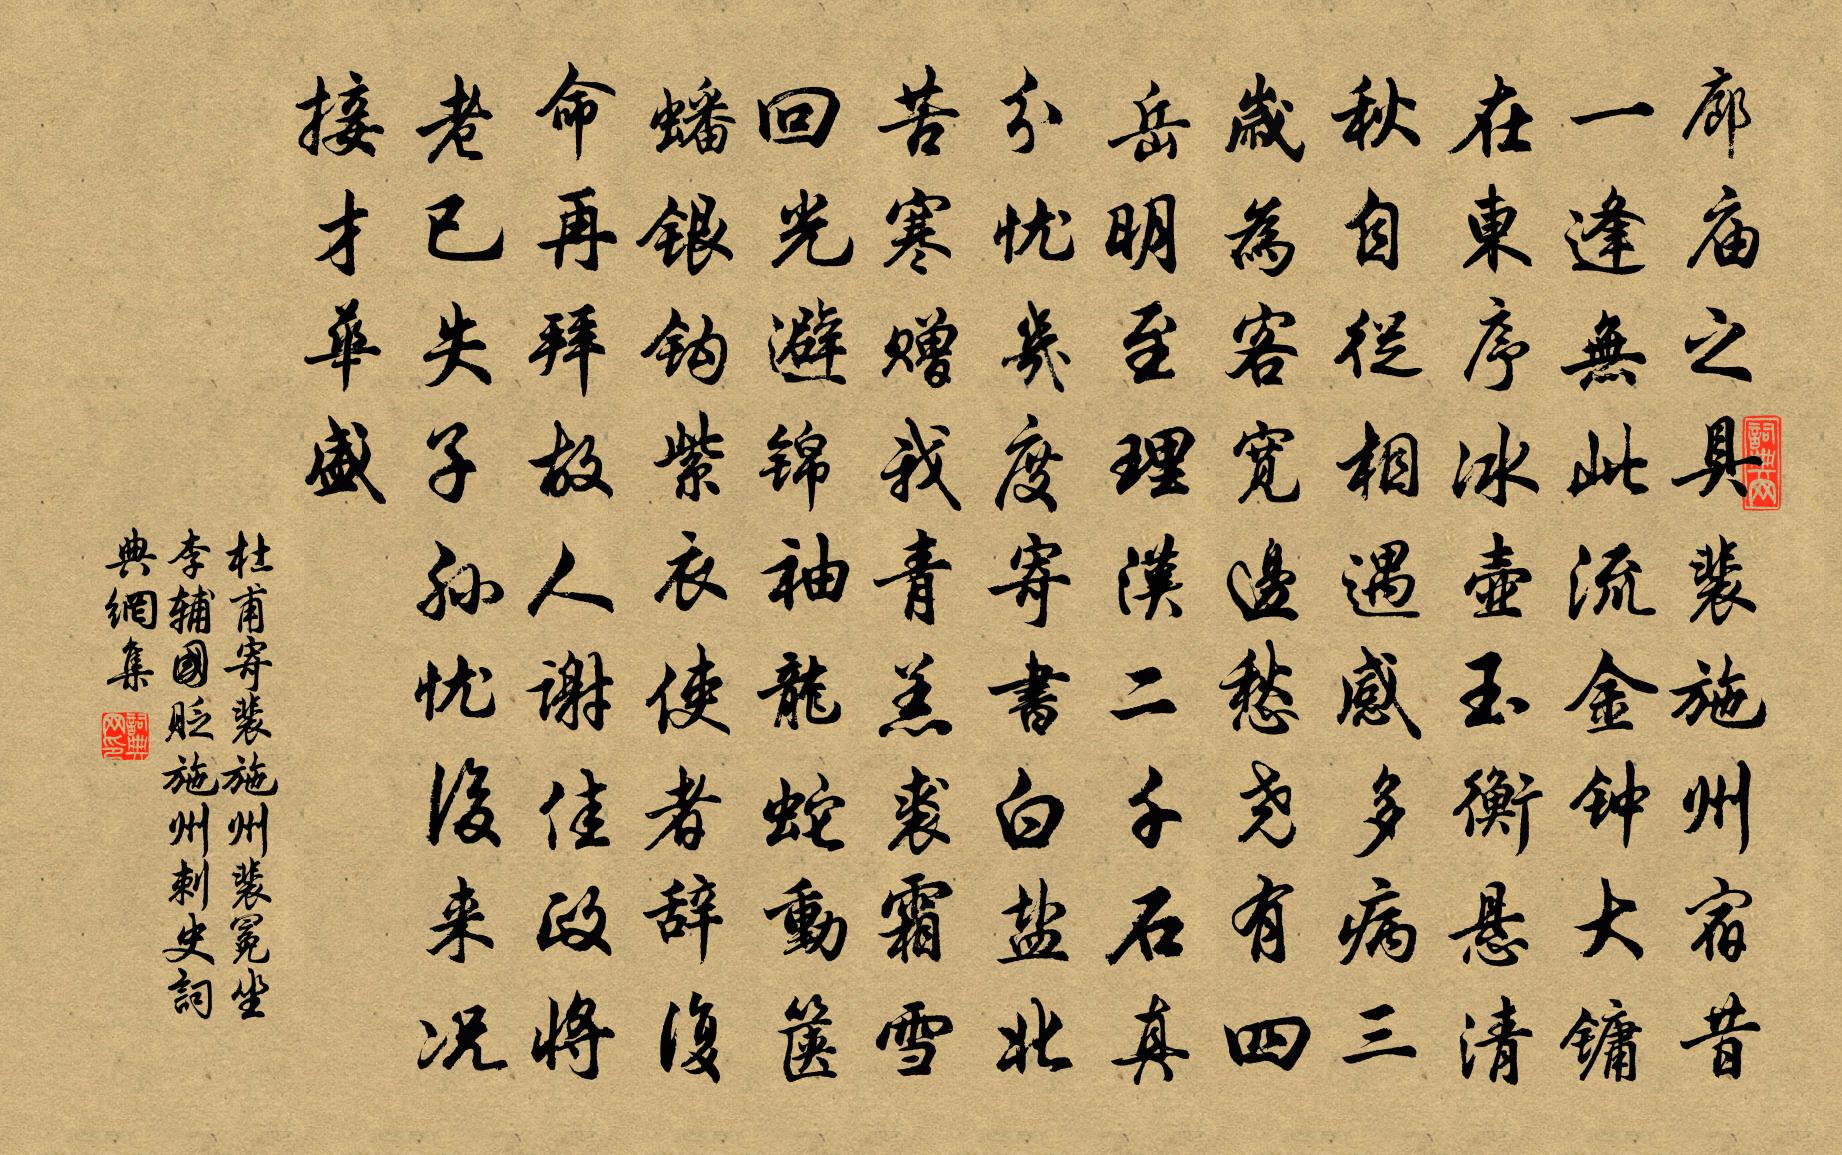 廊庙之具裴施州宿昔
一逢無此流金钟大镛
在東序冰壶玉衡悬清
秋自從相遇感多病三
歲為客宽邊愁尧有四
岳明至理漢二千石真
分忧幾度寄書白盐北
苦寒赠我青羔裘霜雪
回光避锦袖龍蛇動箧
蟠銀钩紫衣使者辞復
命再拜故人謝佳政将
老已失子孙忧後来况
接才華盛
杜甫寄裴施州裴冕坐
李辅國贬施州刺史詞
典網集
詞典网
詞典网印